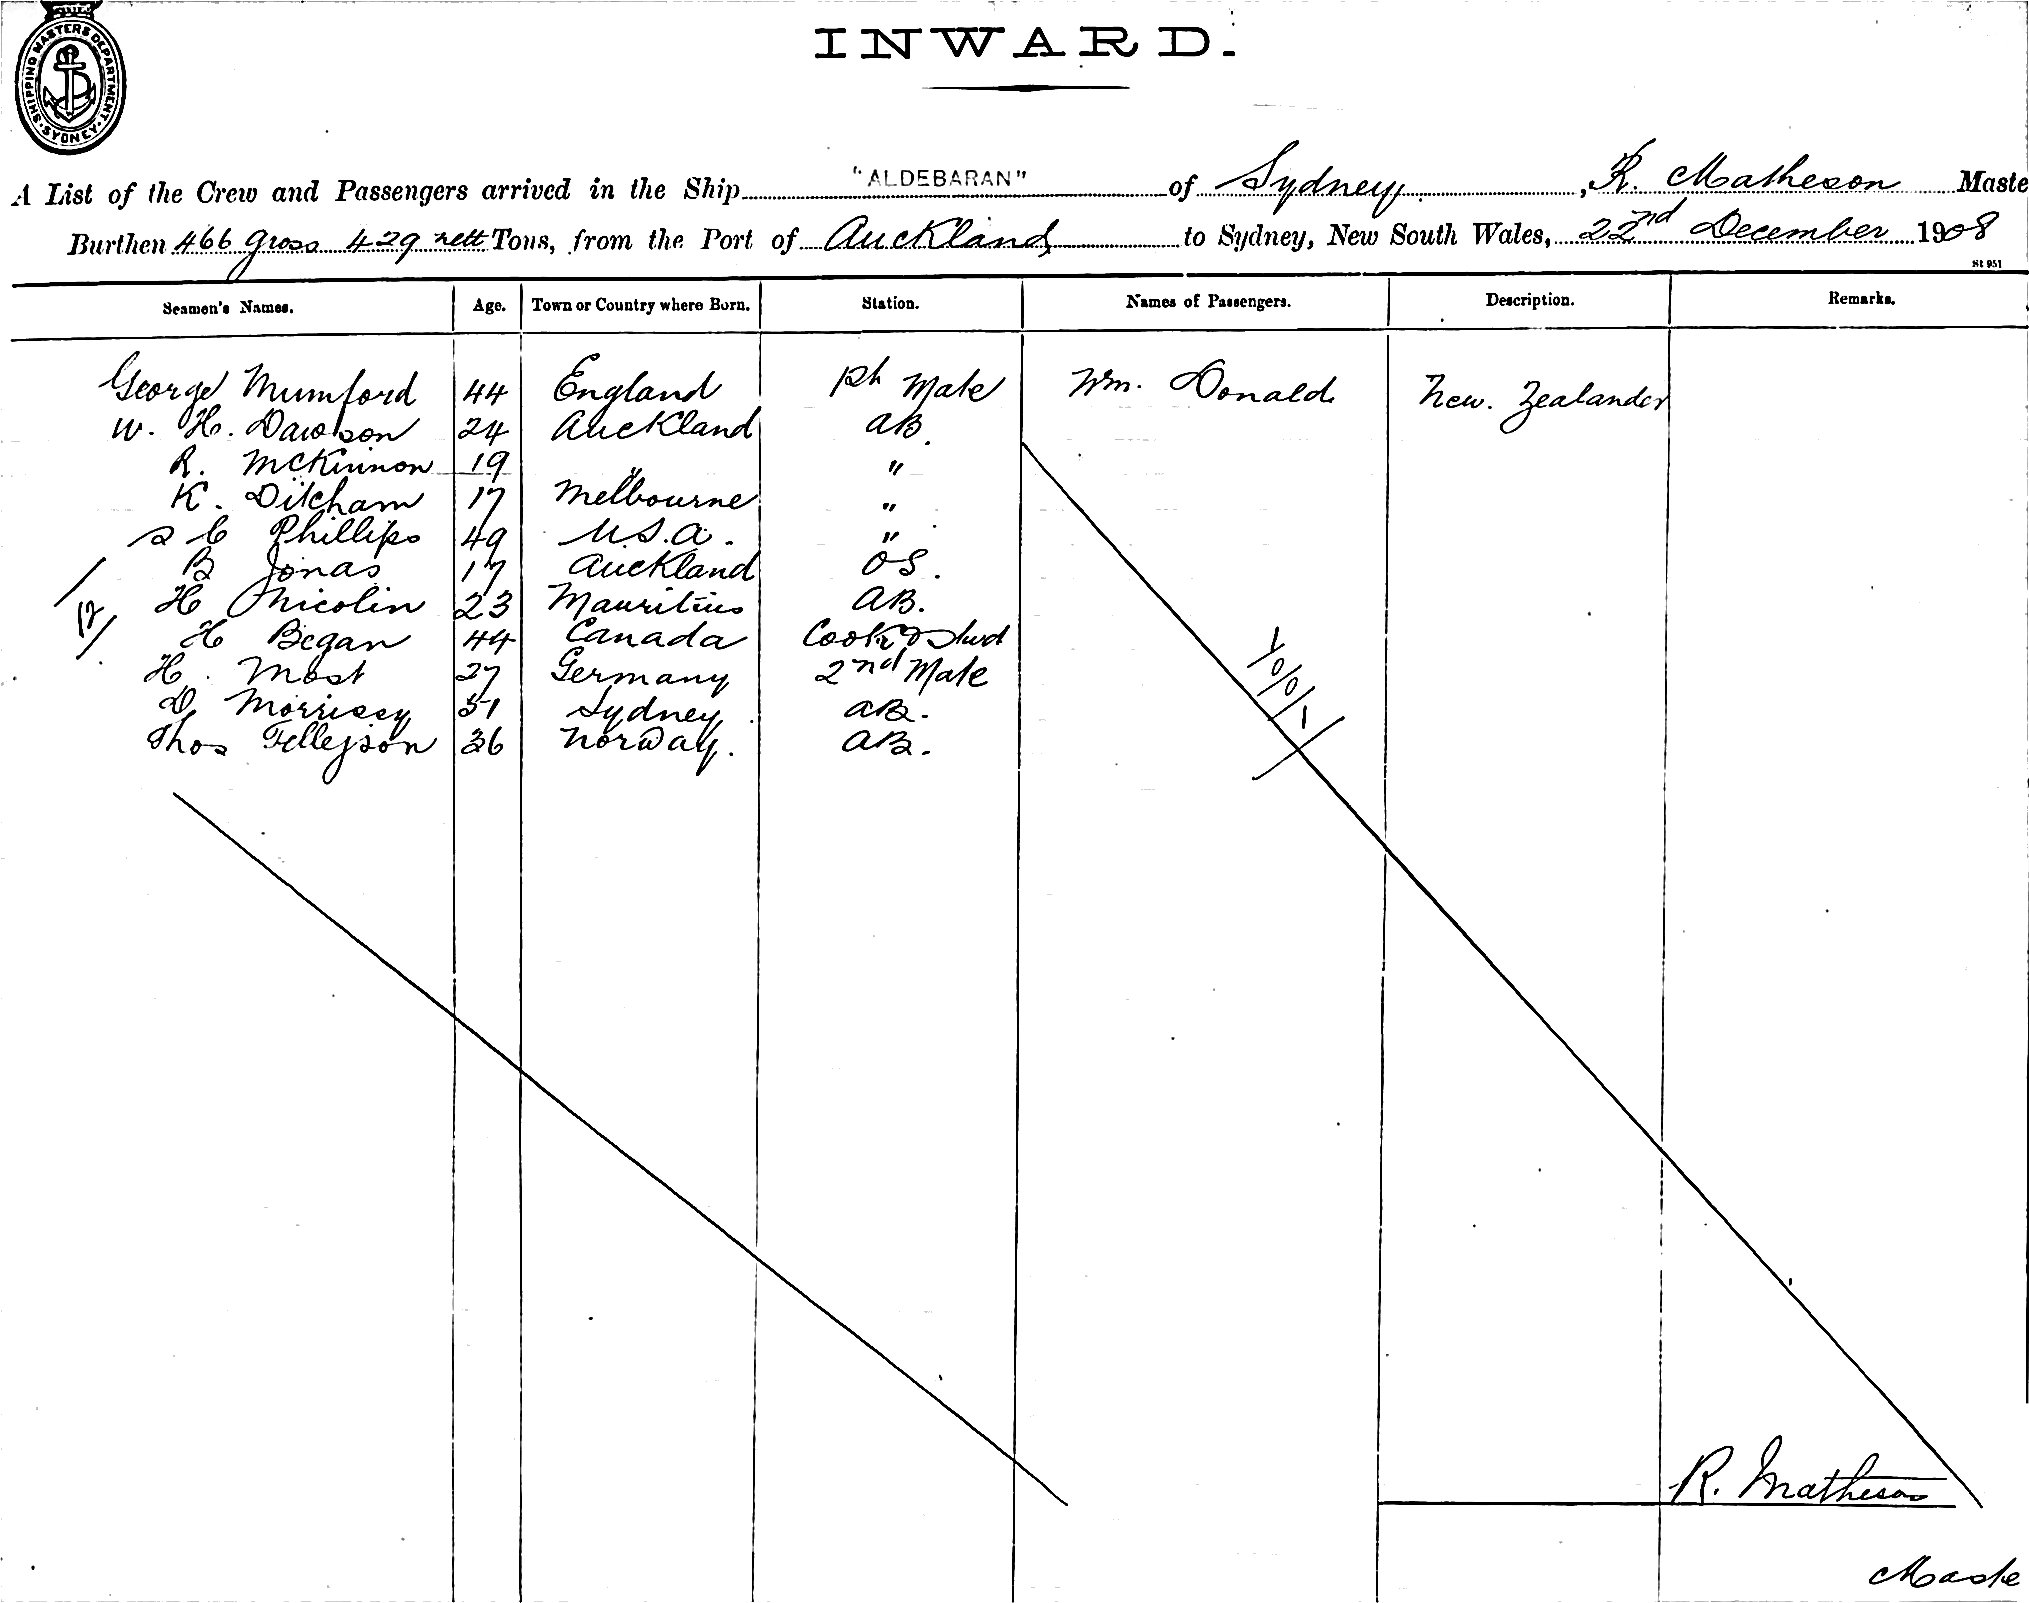 SHIPPING MASTERS DEPARTMENT · SYDNEY ·
INWARD.
A List of the Crew and Passengers arrived in the Ship "ALDEBARAN" of Sydney, R. Matheson Maste
Burthen 466 gross 429 nett Tons, from the Port of Auckland to Sydney, New South Wales, 22nd December 1908
St 951
Seamen's Names. Age. Town or Country where Born. Station. Names of Passengers. Description. Remarks.
George Mumford 44 England Mate Wm. Donald New. Zealander
W. H. Dawson 24 Auckland AB.
R. McKinnon 19 " "
K. Ditcham 17 Melbourne "
C Phillips 49 U.S.A. "
B Jonas 17 Auckland OS.
H Nicolin 23 Mauritius AB.
H Began 44 Canada Cook & Stwd
H. Most 27 Germany 2nd Mate
D. Morrissy 31 Sydney AB.
Thos Tellefson 36 Norway. AB.
12
R. Matheson
Maste